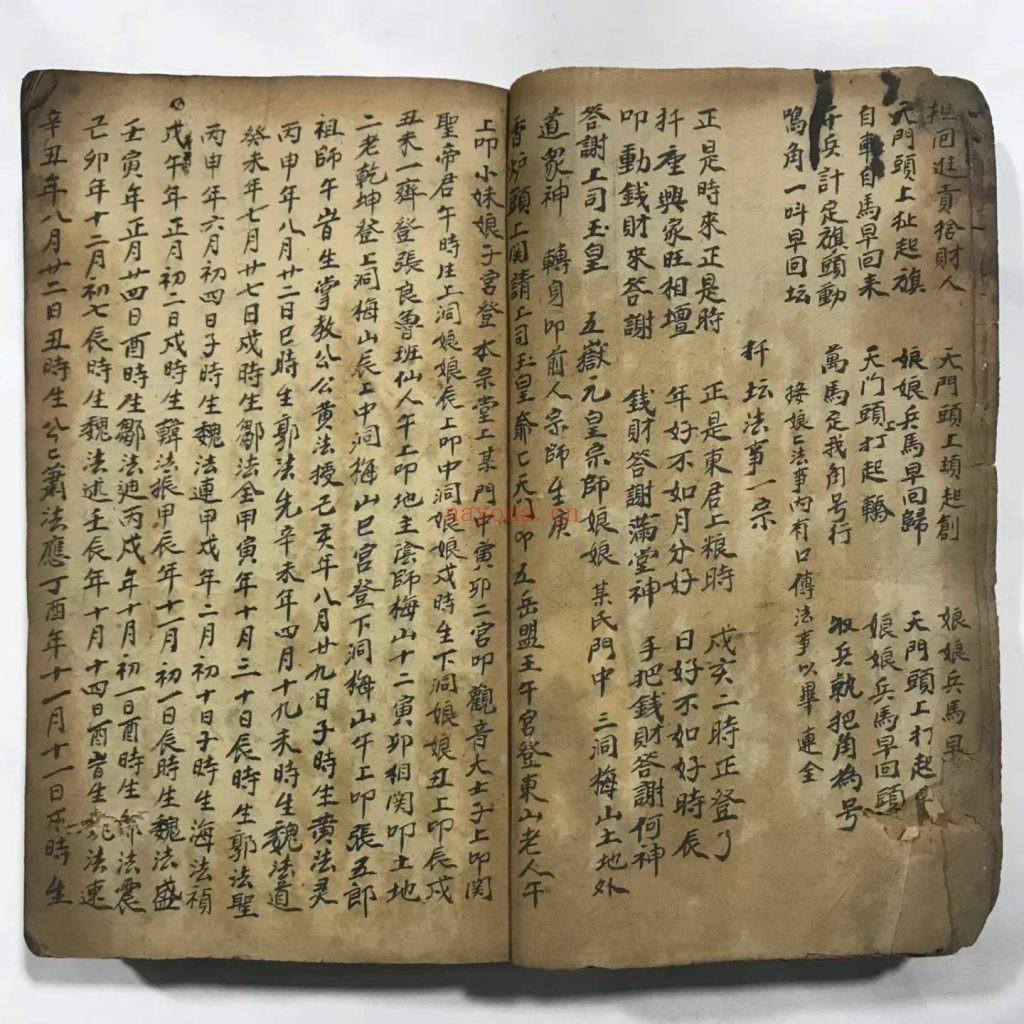 担回逛貢捨財人 天門頭上頭起創 娘娘兵馬早
天門頭上扯起旗 娘娘兵馬早回歸 天門頭上打起
自車自馬早回来 天门頭上打起轎 娘娘兵馬早回頭
兵計足旗頭動 萬馬足我角号行 收兵執把角為号
鳴角一呌早回坛 接娘乚法事內有口傳法事以畢連全
扦坛法事一宗
正是時來正是時 正是東君上粮時 戌亥二時正登了
扦座興家旺相壇 年好不如月分好 日好不如好時辰
叩動錢財來答謝 錢財答謝滿堂神 手把錢財答謝何神
答謝上司玉皇 五嶽元皇宗師娘娘 某氏門中 三洞梅山土地外
道眾神 轉身叩前人宗師生庚
香炉頭上関請上司玉皇爺乚天门叩五岳盟王午宮登東山老人午
上叩小妹娘子宮登本宗堂上某門中寅卯二宮叩觀音大士子上叩関
聖帝君午時生上洞娘娘辰上叩中洞娘娘戌時生下洞娘娘丑上叩辰戌
丑未一齊登張良魯班仙人午上叩地主蔭師梅山十二寅卯相関叩土地
二老乾坤登上洞梅山辰上中洞梅山巳宮登下洞梅山午上叩張五郎
祖師午旹生掌教公公黃法授己亥年八月廿九日子時生黄法灵
丙申年八月廿二日巳時生郭法先辛未年四月十九未時生魏法道
癸未年七月廿七日戌時生鄒法全甲寅年十月三十日辰時生郭法聖
丙申年六月初四日子時生魏法連甲戌年二月初十日子時生海法禎
戊午年正月初二日戌時生韓法振甲辰年十一月初一日辰時生魏法盛
壬寅年正月廿四日酉時生鄒法迪丙戌年十月初一日酉時生法震
己卯年十二月初七辰時生魏法述壬辰年十月十四日酉旹生魏法連
辛丑年八月廿二日丑時生公乚蕭法應丁酉年十一月十一日戌時生
nayona.cn